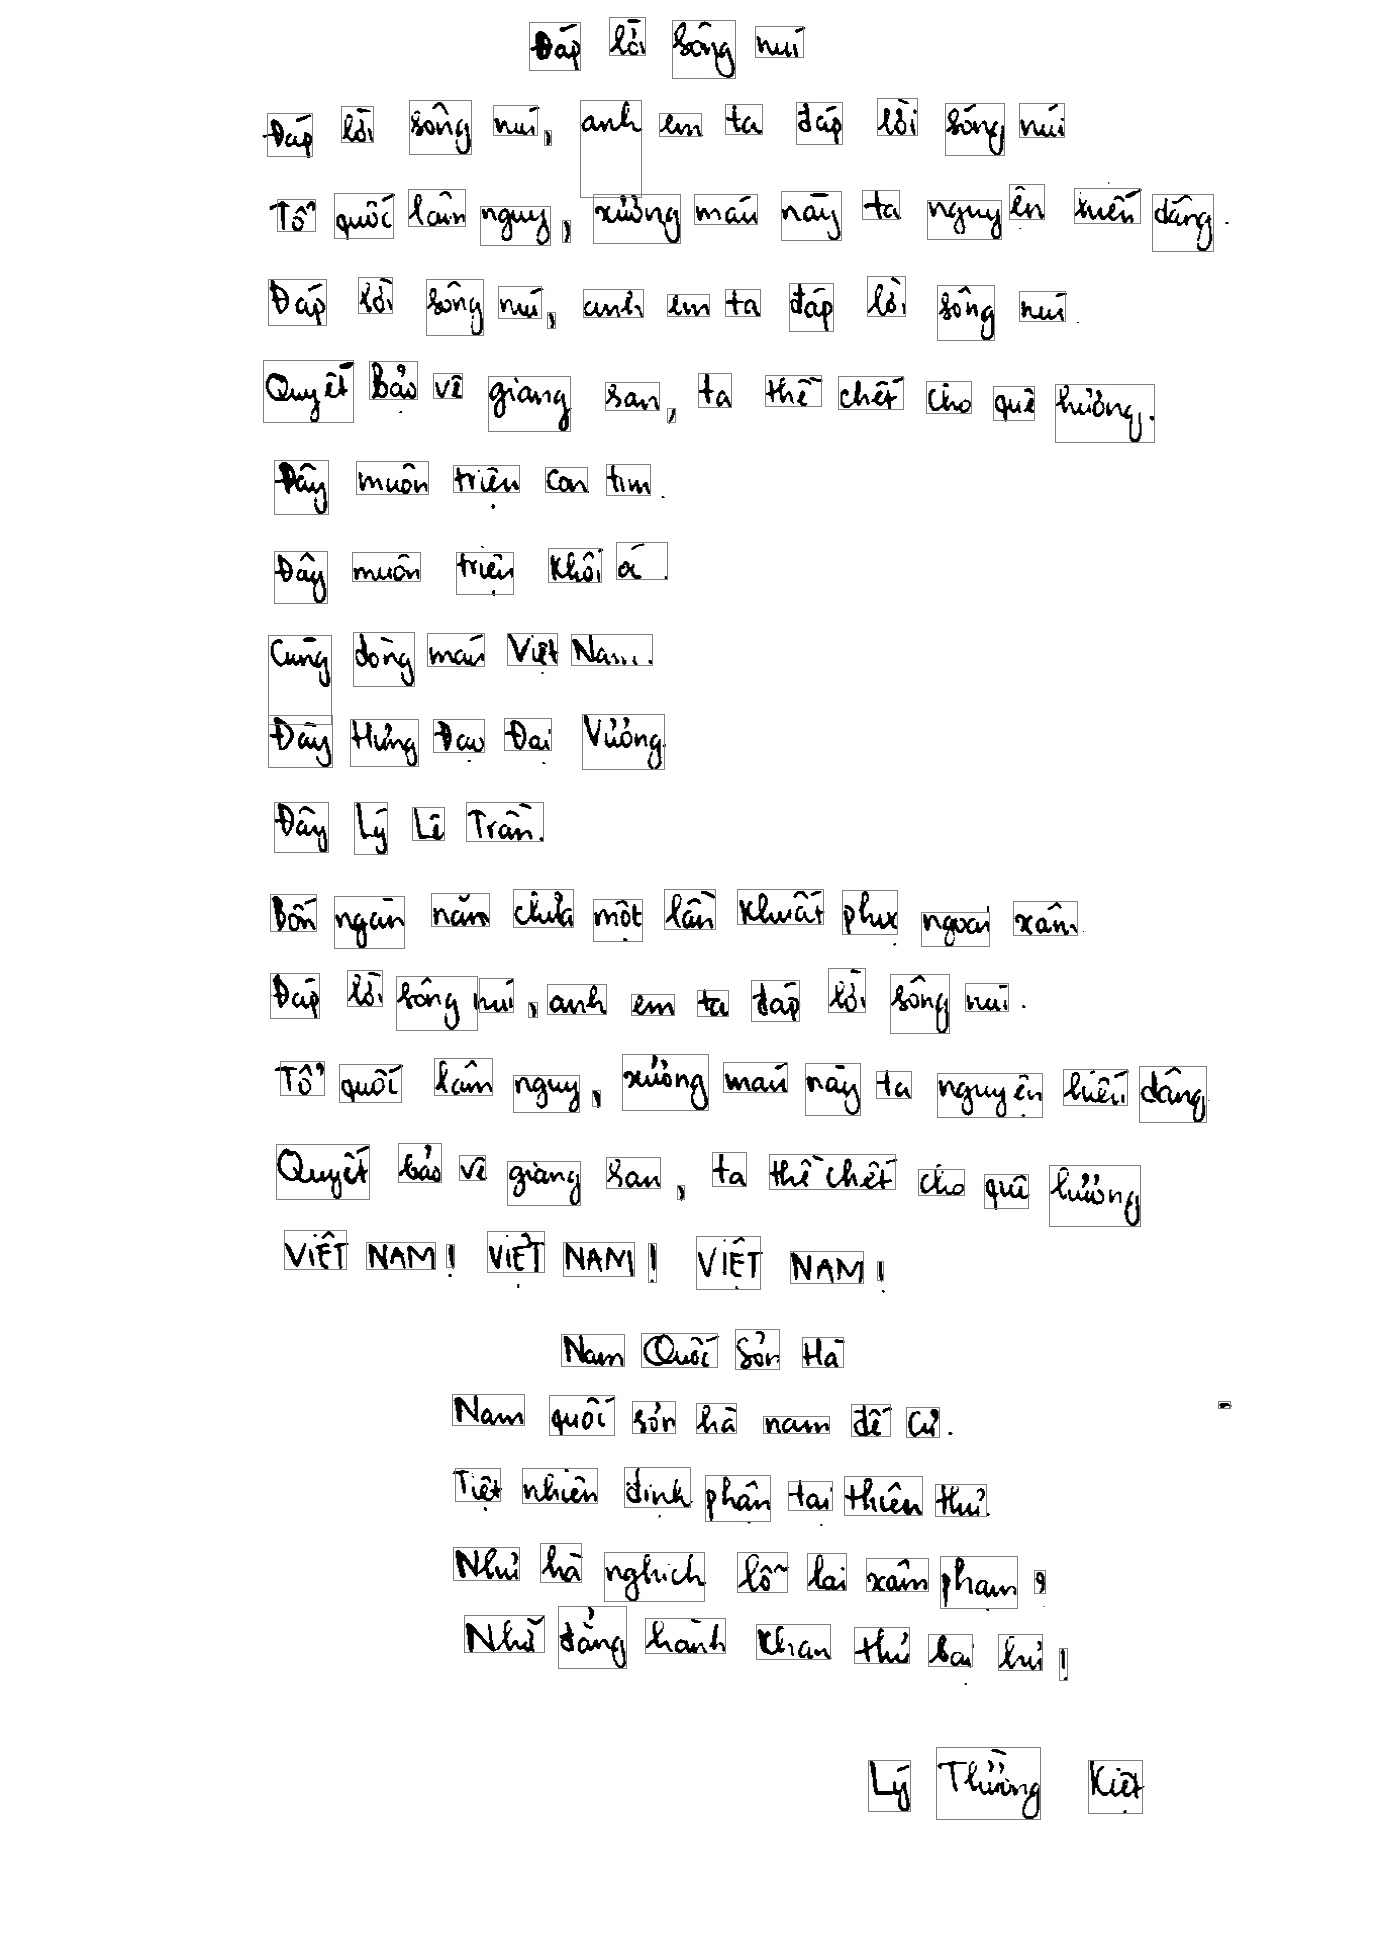 Đáp lời sông núi
Đáp lời sông núi, anh em ta đáp lời sông núi
Tổ quốc lâm nguy, xương máu này ta nguyện hiến dâng.
Đáp lời sông núi, anh em ta đáp lời sông núi.
Quyết bảo vệ giang san, ta thề chết cho quê hương.
Đây muôn triệu con tim.
Đây muôn triệu khối á.
Cùng dòng máu Việt Nam.
Đây Hưng Đạo Đại Vương.
Đây Lý Lê Trần.
Bốn ngàn năm chưa một lần khuất phục ngoại xâm.
Đáp lời sông núi, anh em ta đáp lời sông núi.
Tổ quốc lâm nguy, xương máu này ta nguyện hiến dâng.
Quyết bảo vệ giang san, ta thề chết cho quê hương
VIỆT NAM! VIỆT NAM! VIỆT NAM!
Nam Quốc Sơn Hà
Nam quốc sơn hà nam đế cư.
Tiệt nhiên định phận tại thiên thư.
Như hà nghịch lỗ lai xâm phạm?
Nhữ đẳng hành khan thủ bại hư!
Lý Thường Kiệt